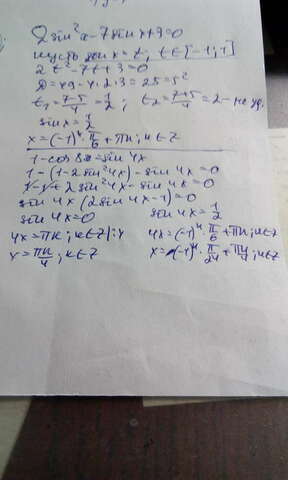 2sin²x-7sinx+3=0
пусть sin x = t, t∈[-1;1]
2t²-7t+3=0
D=49-4·2·3=25=5²
t₁=7-5/4=1/2; t₂=7+5/4=2- не уд.
sin x=1/2
x=(-1)ᵏ·π/6+πk; k∈Z
1-cos 8x=sin 4x
1-(1-2sin²4x)-sin 4x=0
1-1+2sin²4x-sin 4x=0
sin 4x(2sin 4x-1)=0
sin 4x=0 sin 4x=1/2
4x=πk; k∈Z |:4 4x=(-1)ᵏ·π/6+πk; k∈Z
x=πk/4; k∈Z x=(-1)ᵏ·π/24+πk/4; k∈Z